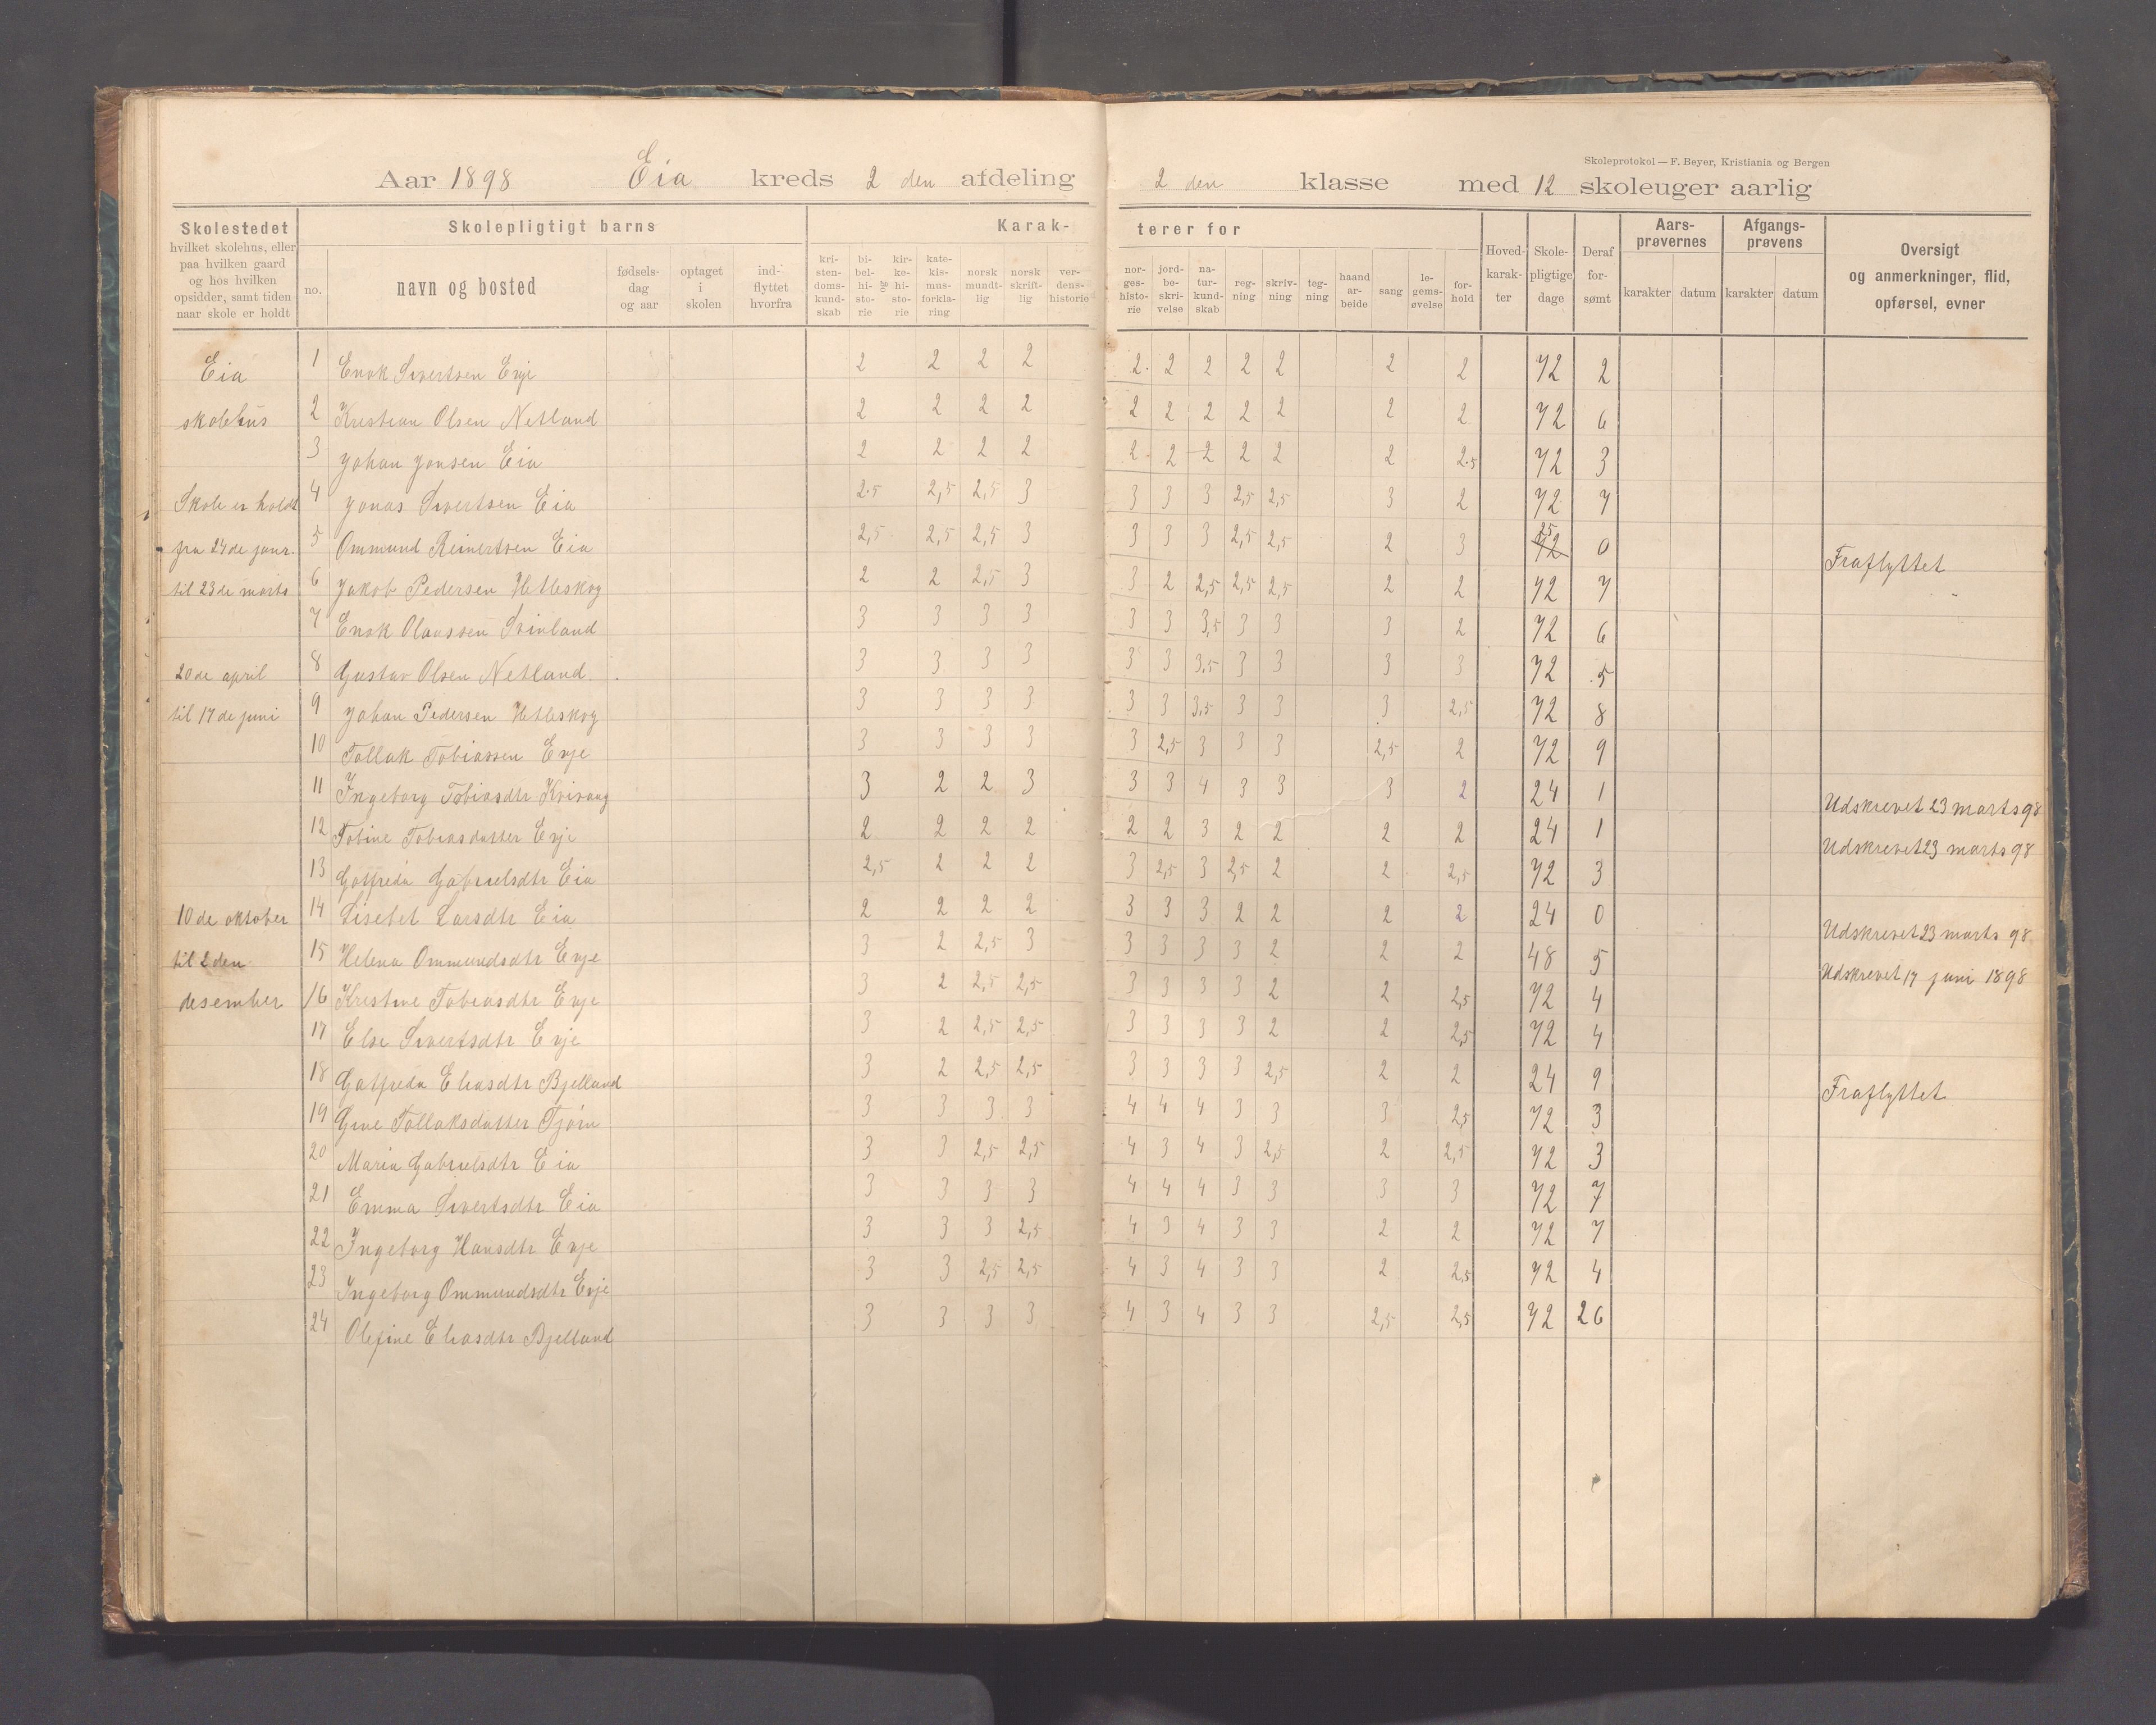 Skoleprotokol — F. Beyer, Kristiania og Bergen
Aar 1898 Eia kreds 2 den afdeling 2 den klasse med 12 skoleuger aarlig
Skolestedet hvilket skolehus, eller paa hvilken gaard og hos hvilken opsidder, samt tiden naar skole er holdt
Skolepligtigt barns
no. navn og bosted fødselsdag og aar optaget i skolen ind-flyttet hvorfra
Karak- terer for
kri-sten-doms-kund-skab bi-bel-hi-sto-rie og kir-ke-hi-sto-rie kate-kis-mus-forkla-ring norsk mundt-lig norsk skrift-lig ver-dens-historie nor-ges-histo-rie jord-be-skri-velse na-tur-kund-skab reg-ning skriv-ning teg-ning haand ar-beide sang le-gems-øvelse for-hold
Hoved-karak-ter Skole-pligtige dage Deraf for-sømt
Aars-prøvernes karakter datum
Afgangs-prøvens karakter datum
Oversigt og anmerkninger, flid, opførsel, evner
Eia 1 Enok Sivertsen Evje 2 2 2 2 2 2 2 2 2 2 2 72 2
skolehus 2 Kristian Olsen Netland 2 2 2 2 2 2 2 2 2 2 2 72 6
3 Johan Jonsen Eia 2 2 2 2 2 2 2 2 2 2 2.5 72 3
Skole er holdt 4 Jonas Sivertsen Eia 2.5 2,5 2,5 3 3 3 3 2,5 2,5 3 2 72 7
fra 24de janr. 5 Ommund Reinertsen Eia 2,5 2,5 2,5 3 3 3 3 2,5 2,5 2 3 25 72 0 Fraflyttet
til 23de marts 6 Jakob Pedersen Hetleskog 2 2 2,5 3 3 2 2,5 2,5 2,5 2 2 72 7
7 Enok Olaussen Svinland 3 3 3 3 3 3 3,5 3 3 3 2 72 6
20de april 8 Gustav Olsen Netland 3 3 3 3 3 3 3,5 3 3 3 3 72 5
til 17de juni 9 Johan Pedersen Hetleskog 3 3 3 3 3 3 3,5 3 3 3 2,5 72 8
10 Tollak Tobiassen Evje 3 3 3 3 3 2,5 3 3 3 2,5 2 72 9
11 Ingeborg Tobiasdtr 3 2 2 3 3 3 4 3 3 3 2 24 1 Udskrevet 23 marts 98
12 Tobine Tobiasdatter Evje 2 2 2 2 2 2 3 2 2 2 2 24 1 Udskrevet 23 marts 98
13 Gotfreda Gabrielsdtr Eia 2,5 2 2 2 3 2,5 3 2,5 2 2 2,5 72 3
10de oktober 14 Lisebet Larsdtr Eia 2 2 2 2 3 3 3 2 2 2 2 24 0 Udskrevet 23 marts 98
til 2den 15 Helena Ommundsdtr Evje 3 2 2,5 3 3 3 3 3 2 2 2 48 5 Udskrevet 17 juni 1898
desember 16 Kristine Tobiasdtr Evje 3 2 2,5 2,5 3 3 3 3 2 2 2,5 72 4
17 Else Sivertsdtr Evje 3 2 2,5 2,5 3 3 3 3 2 2 2,5 72 4
18 Gotfreda Eliasdtr Bjelland 3 2 2,5 2,5 3 3 3 3 2,5 2 2 24 9 Fraflyttet
19 Gine Tollaksdatter Tjørn 3 3 3 3 4 4 4 3 3 3 2,5 72 3
20 Maria Gabrielsdtr Eia 3 3 2,5 2,5 4 3 4 3 2,5 2 2,5 72 3
21 Emma Sivertsdtr Eia 3 3 3 3 4 4 4 3 3 3 3 72 7
22 Ingeborg Hansdtr Evje 3 3 3 2,5 4 3 4 3 3 2 2 72 7
23 Ingeborg Ommundsdtr Evje 3 3 2,5 2,5 4 3 4 3 3 2 2,5 72 4
24 Olefine Eliasdtr Bjelland 3 3 3 3 4 3 4 3 3 2,5 2,5 72 26